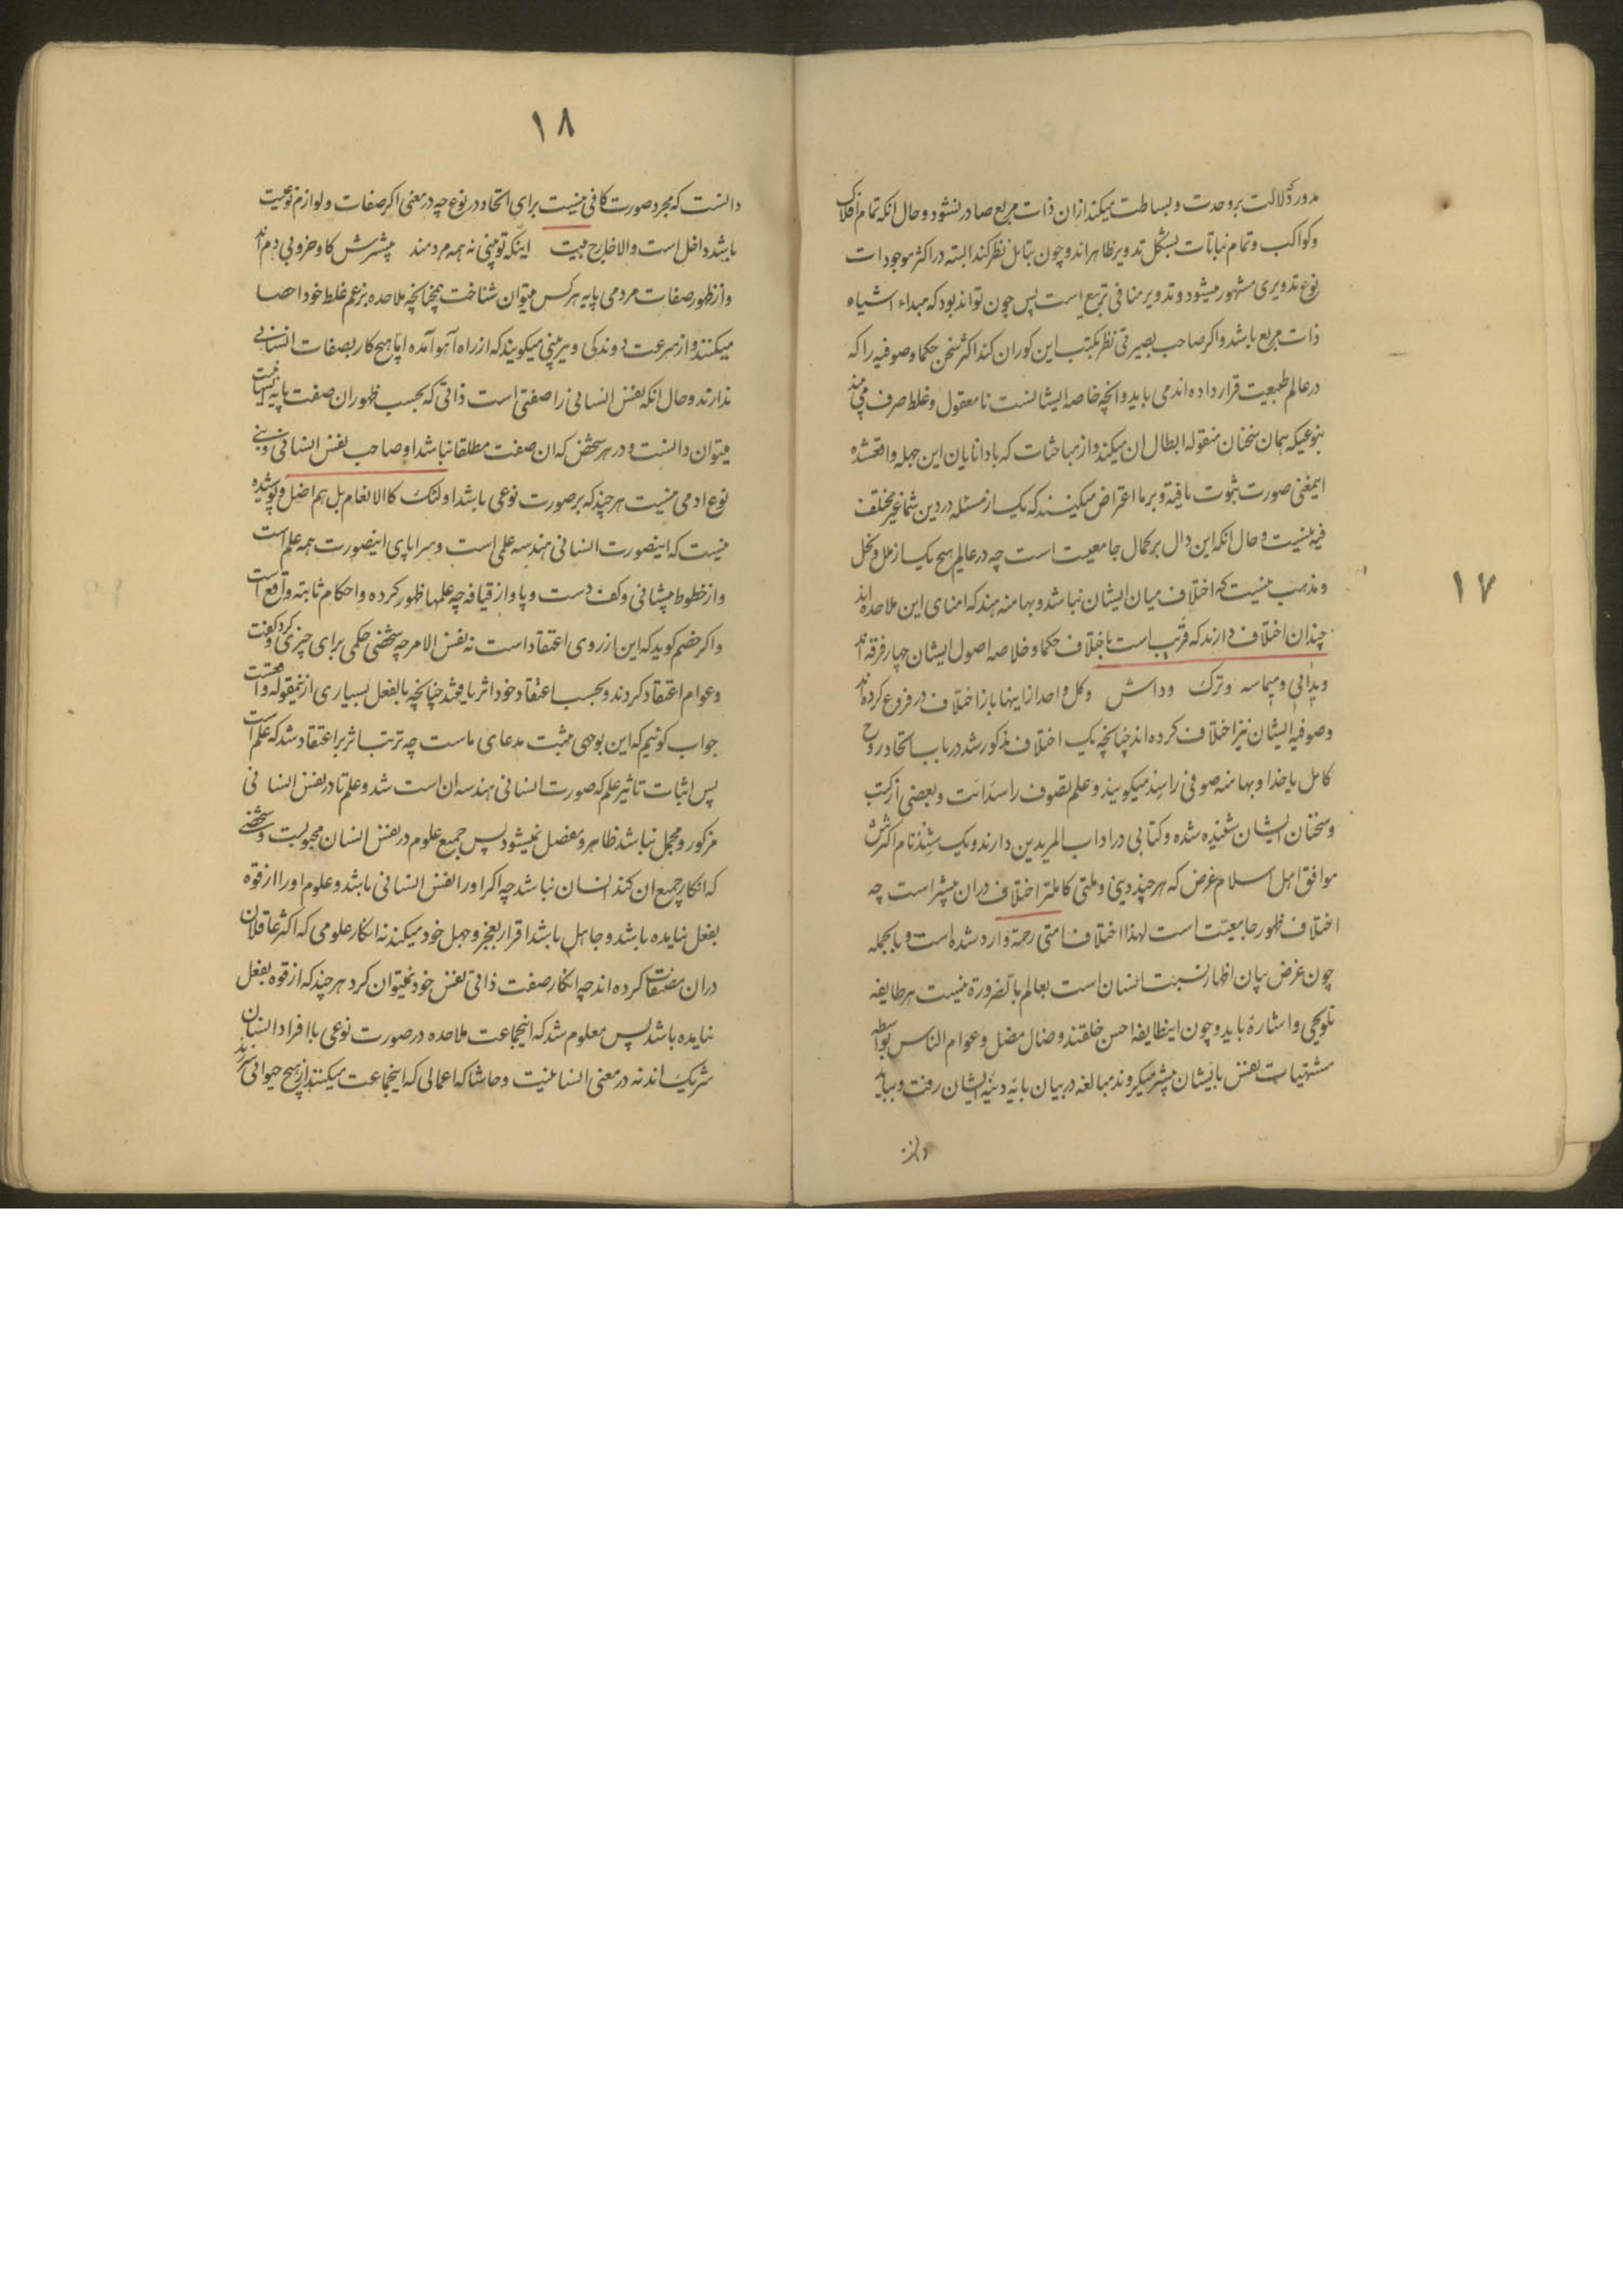 مدور که دلالت بر وحدت و بساطت میکند ازان ذات مربع صادر نشود و حال انکه تمام افلاک
وکواکب وتمام نباتات بشکل تدویر ظاهراند و چون بتامل نظر کند البته در اکثر موجودات
نوع تدویری مشهور میشود و تدویر منافی تربیع است پس چون تواند بود که مبداء اشیاه
ذات مربع باشد واکر صاحب بصیرتی نظر بکتب این کوران کند اکثر سخن حکما وصوفیه را که
در عالم طبیعت قرار داده اند می باید وانچه خاصه ایشانست نامعقول وغلط صرف می بیند
بنوعیکه همان سخنان منقوله ابطال ان میکند واز مباحثات که با دانایان این جهله واقعشده
اینمعنی صورت ثبوت یافته و بر ما اعتراض میکنند که یک از مسئله در دین شما غیر مختلف
فیه نیست وحال انکه این دال بر کمال جامعیت است چه در عالم هیچ یک از ملل ونحل
ومذهب نیست که اختلاف میان ایشان نباشد و بهامنه هند که امنای این ملاحده اند
چندان اختلاف دارند که قریب است باختلاف حکما وخلاصه اصول ایشان چهار فرقه اند
ویدانی ومیماسه وترک وداش وکل واحد ازاینها باز اختلاف در فروع کرده اند
وصوفیه ایشان نیز اختلاف کرده اند چنانچه یک اختلاف مذکور شد در باب اتحاد روح
کامل با خدا وبهامنه صوفی را سند میکویند وعلم تصوف را سدانت وبعضی از کتب
وسخنان ایشان شنیده شده وکتابی در اداب المریدین دارند ویک شند نام اکثرش
موافق اهل اسلام غرض که هر چند دینی وملتی کاملتر اختلاف دران بیشتر است چه
اختلاف ظهور جامعیّت است لهذا اختلاف امتی رحمة وارد شده است وبالجمله
چون غرض بیان اظهار نسبت انسان است بعالم بالضرورة نیست هر طایفه
تلویحی واشارة باید و چون اینطایفه احسن خلقتند وضال مضل وعوام الناس بواسطه
مشتهیات نفس بایشان بیشتر میکروند مبالغه در بیان پایه دنیّه ایشان رفت و بباید
۱۷
۱۸
دانست که مجرد صورت کافی نیست برای اتحاد در نوع چه در معنی اکر صفات ولوازم نوعیت
باشد داخل است والا خارج بیت اینکه تو بینی نه همه مردمند بیشترش کاو وخر وبی دم اند
واز ظهور صفات مردمی پایه هرکس میتوان شناخت همچنانچه ملاحده بزعم غلط خود احصا
میکنند واز سرعت دوندکی وپر بینی میکویند که از راه آهو آمده اما هیچ کار بصفات انسانی
ندارند وحال انکه نفس انسانی را صفتی است ذاتی که بحسب ظهور ان صفت پایه انسانیت
میتوان دانست ودر هر شخص که ان صفت مطلقا نباشد او صاحب نفس انسانی نی
نوع ادمی نیست هر چند که بر صورت نوعی باشد اولئک کالانعام بل هم اضل وپوشیده
نیست که اینصورت انسانی هندسه علمی است وسراپای اینصورت همه علم است
واز خطوط پیشانی وکف دست وپا واز قیافه چه علمها ظهور کرده واحکام ثابته واقع است
واکر خصم کوید که این از روی اعتقاد است نه نفس الامر چه شخصی حکمی برای چیزی کرد وکفت
وعوام اعتقاد کردند وبحسب اعتقاد خود اثر یافتند چنانچه بالفعل بسیاری ازینمقوله واقعست
جواب کوئیم که این بوجهی مثبت مدعای ماست چه ترتب اثر بر اعتقاد شد که علم است
پس اثبات تاثیر علم که صورت انسانی هندسه ان است شد وعلم تا در نفس انسانی
مرکوز ومجمل نباشد ظاهر ومفصل نمیشود پس جمیع علوم در نفس انسان مجبولست وشخصی
که انکار جمیع ان کند انسان نباشد چه اکر او را نفس انسانی باشد وعلوم او را از قوه
بفعل نیامده باشد وجاهل باشد اقرار بعجز وجهل خود میکند نه انکار علومی که اکثر عاقلان
دران مصنفات کرده اند چه انکار صفت ذاتی نفس خود نمیتوان کرد هر چند که از قوه بفعل
نیامده باشد پس معلوم شد که اینجماعت ملاحده در صورت نوعی با افراد انسان
شریک اند نه در معنی انسانیت وحاشا که اعمالی که اینجماعت میکنند از هیچ حیوانی سر زند